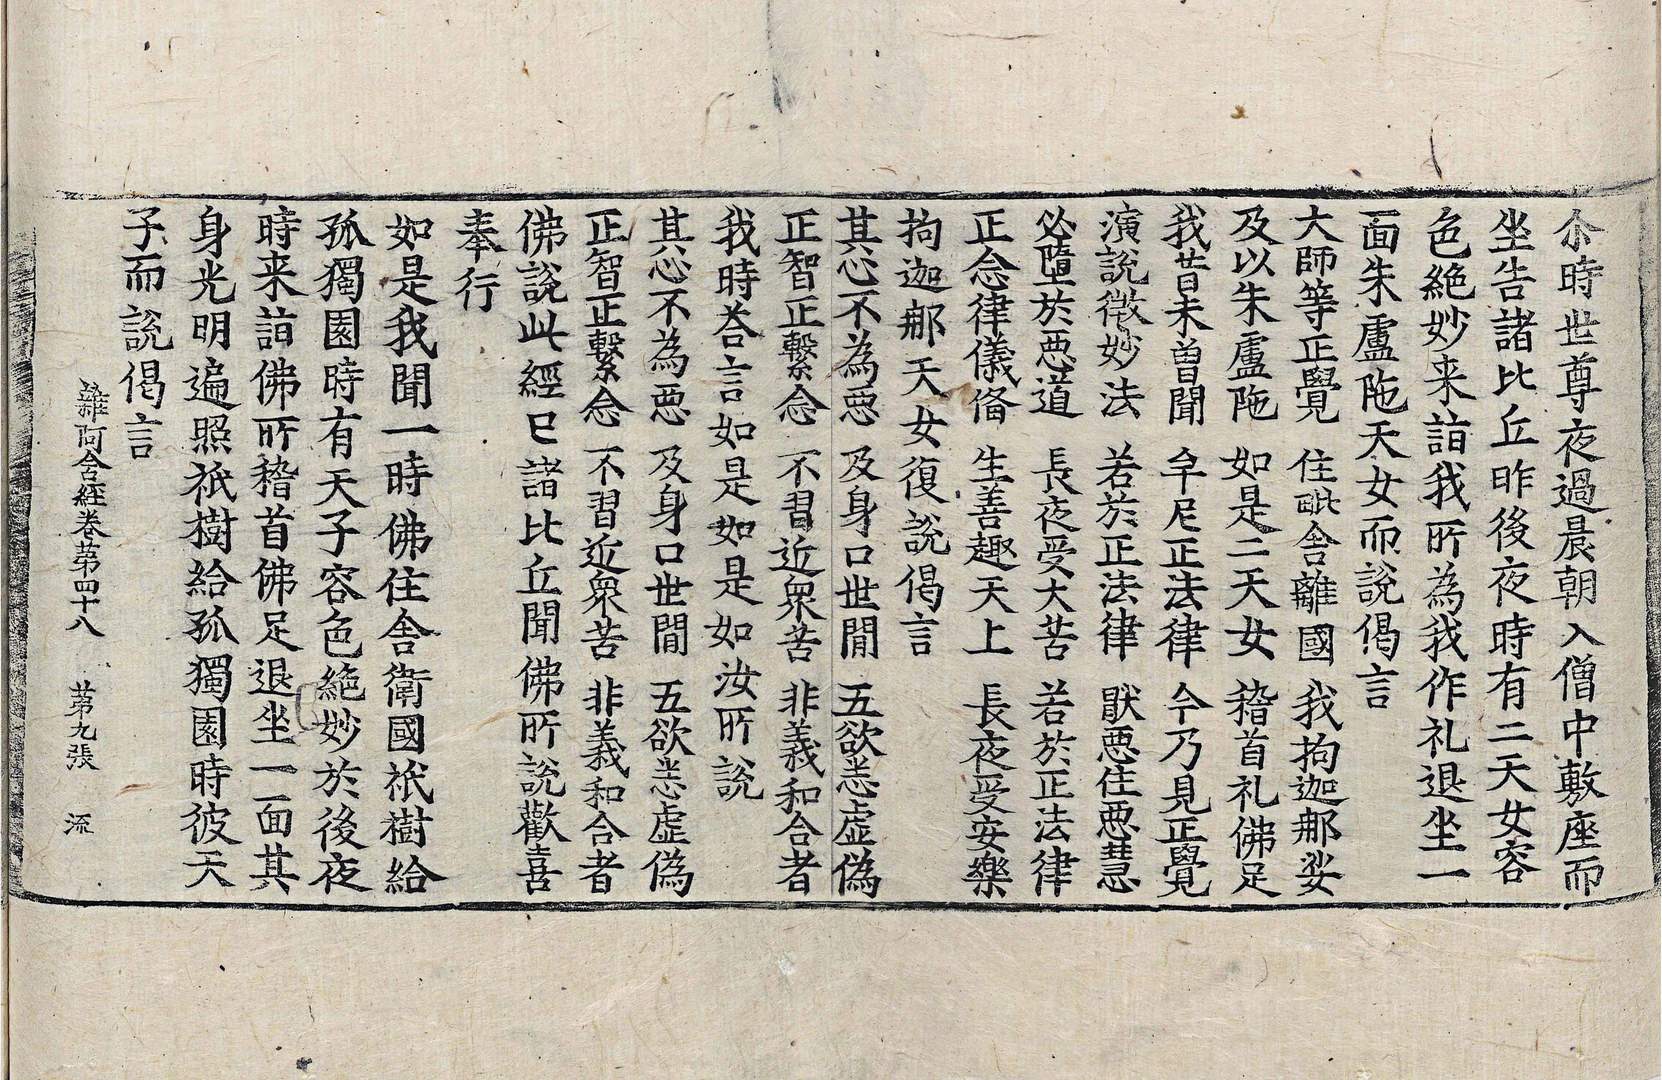 尒時世尊夜過晨朝入僧中敷座而
坐告諸比丘昨後夜時有二天女容
色絶妙来詣我所為我作礼退坐一
面朱盧陁天女而說偈言
大師等正覺 住毗舍離國 我拘迦那娑
及以朱盧陁 如是二天女 稽首礼佛足
我昔未曽聞 牟尼正法律 今乃見正覺
演說微妙法 若於正法律 猒惡住惡慧
必墮於惡道 長夜受大苦 若於正法律
正念律儀俻 生善趣天上 長夜受安樂
拘迦那天女復說偈言
其心不為惡 及身口世閒 五欲悉虛偽
正智正繫念 不習近衆苦 非義和合者
我時荅言如是如是如汝所說
其心不為惡 及身口世閒 五欲悉虛偽
正智正繫念 不習近衆苦 非義和合者
佛說此經已諸比丘聞佛所說歡喜
奉行
如是我聞一時佛住舍衛國祇樹給
孤獨園時有天子容色絶妙於後夜
時来詣佛所稽首佛足退坐一面其
身光明遍照祇樹給孤獨園時彼天
子而說偈言
雜阿含経卷苐四十八 苐九張 流